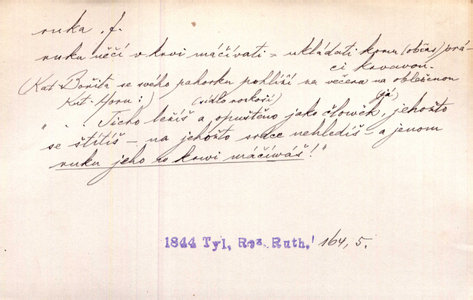 ruka, f.
ruku něčí v krvi máčívati - ukládati komu (občas) prá-
ci krvavou.
(Kat Božita se svého pahorku pohlíží na večera na obleženou
Kut. Horu:) (sídlo rozkoší) (já)
"Ticho ležíš a opuštěno jako člověk, jehožto
se štítíš - na jehožto srdce nehledíš - a jenom
ruku jeho v krvi máčíváš!"
1844 Tyl, Roz. Ruth. 164, 5.